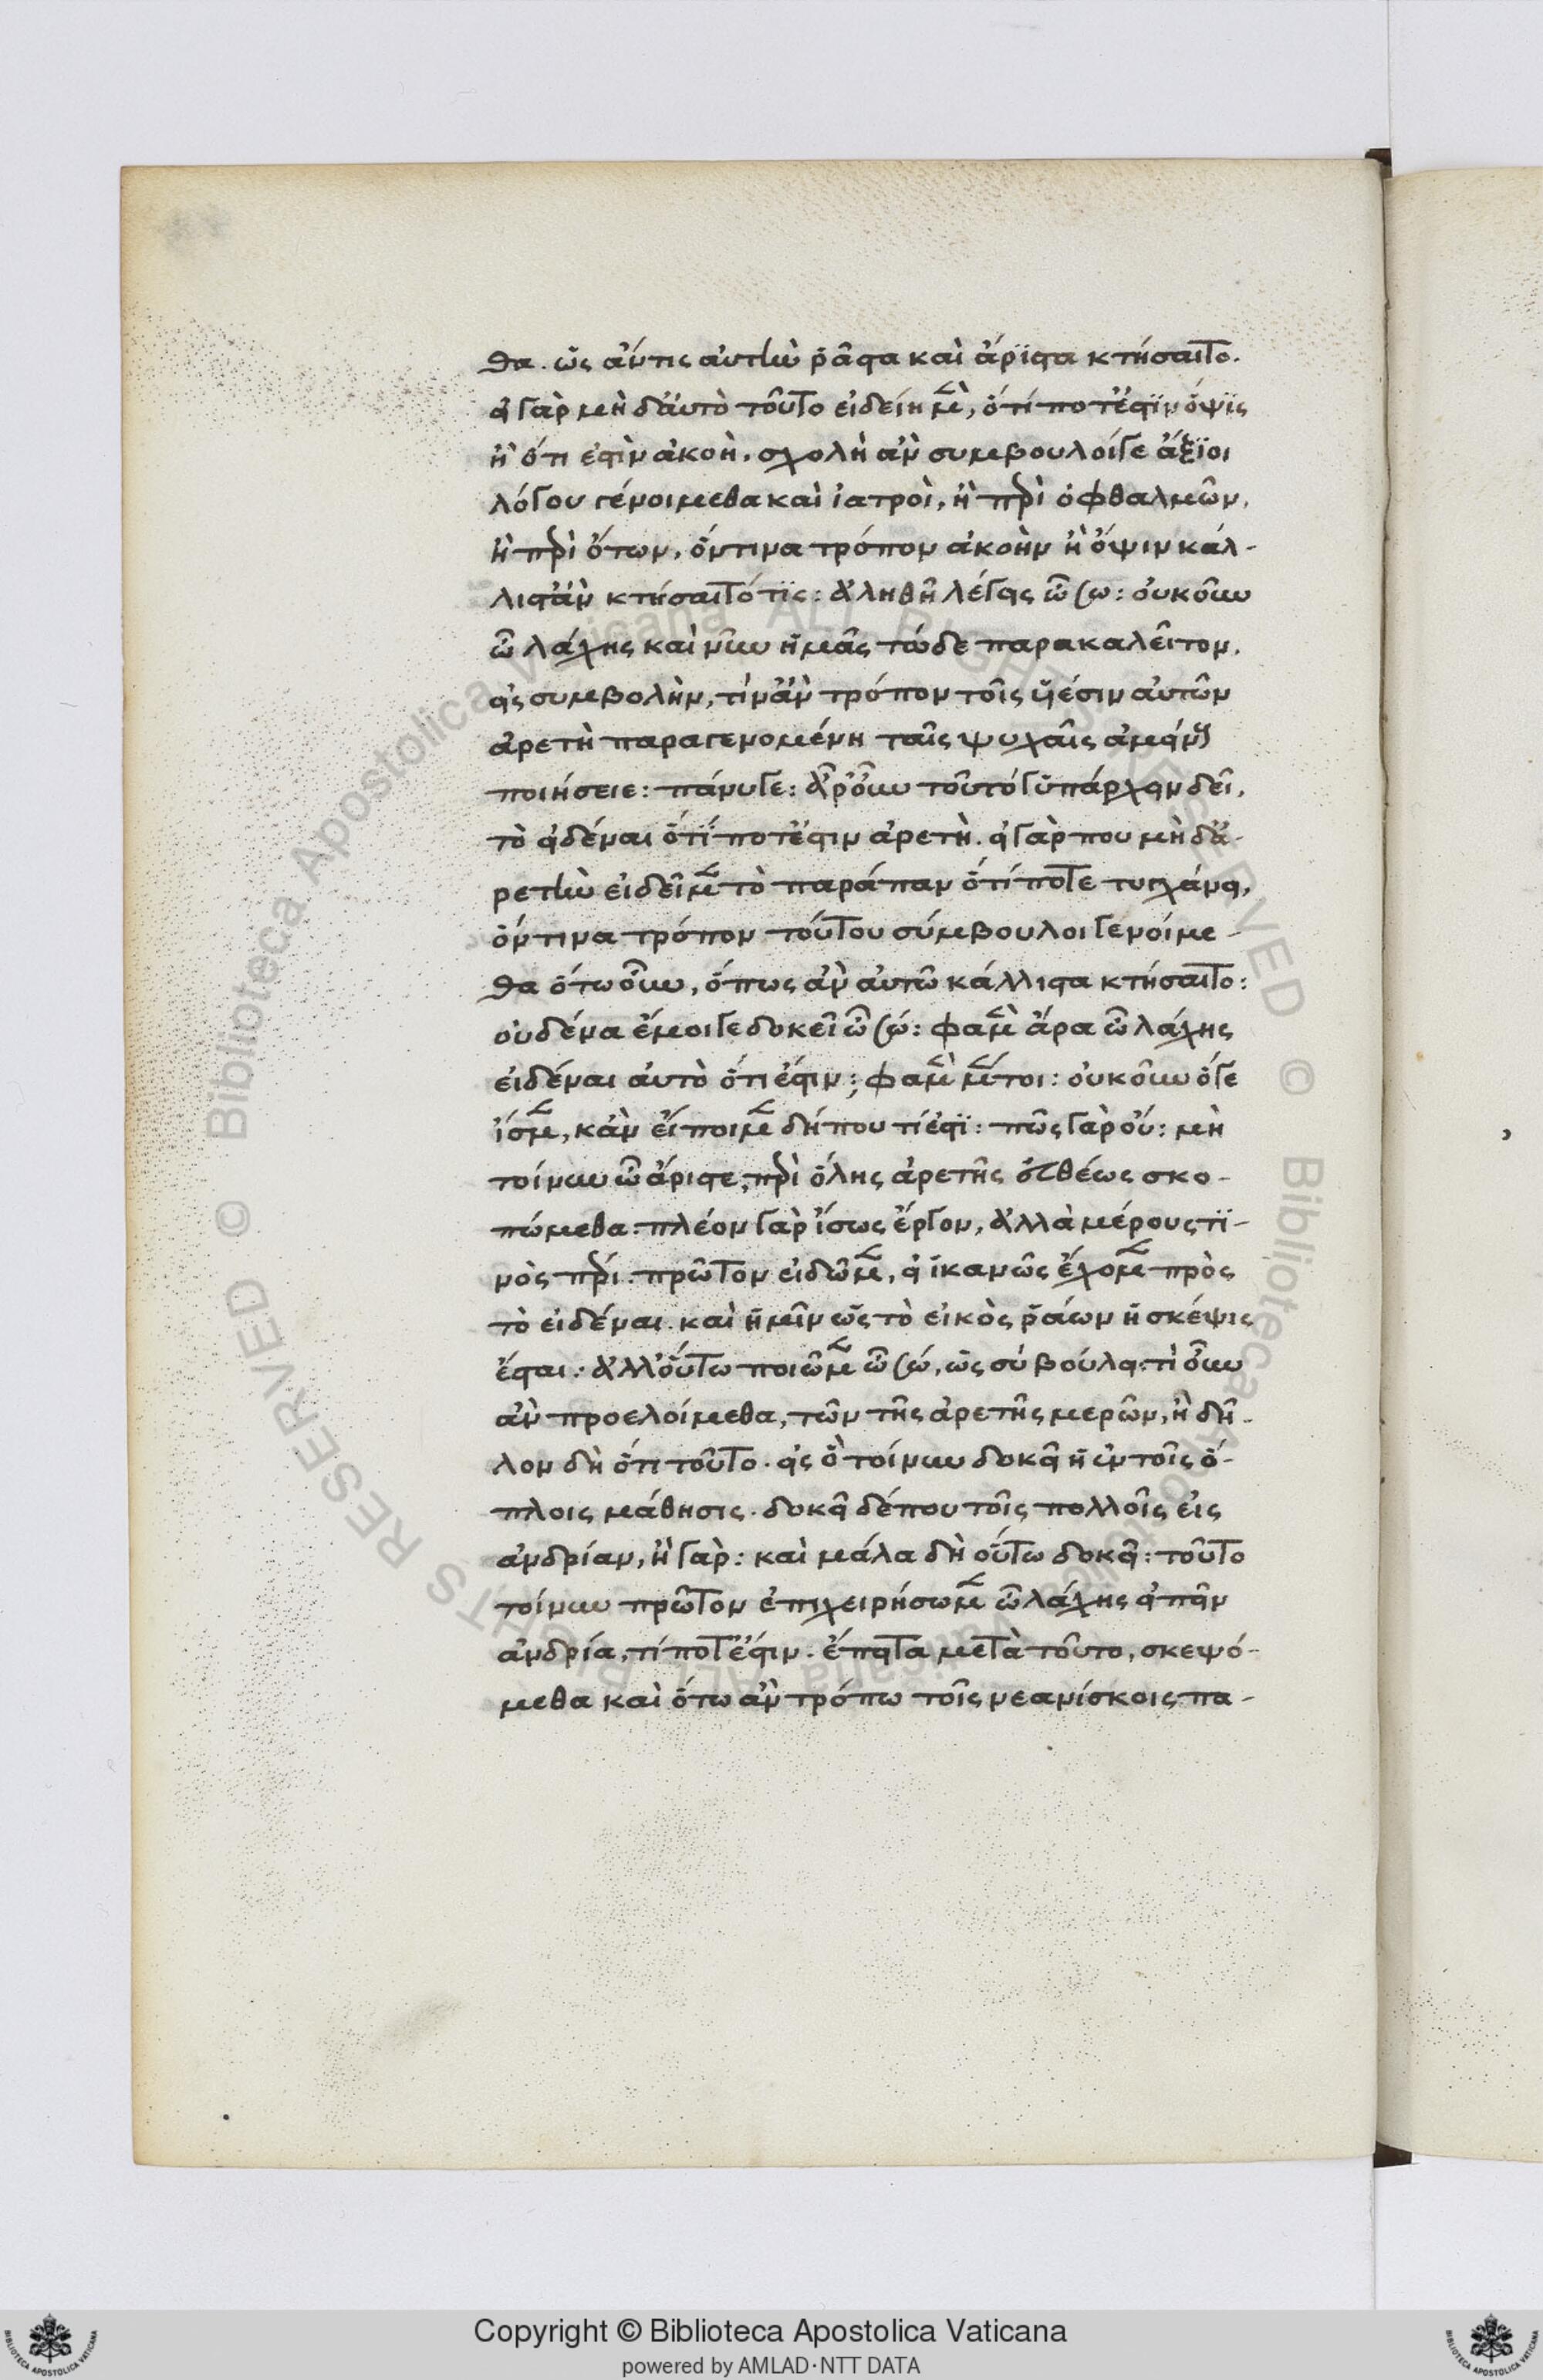 θα. ὡς ἄν τις αὐτὴν ῥᾶστα καὶ ἄριστα κτήσαιτο.
εἰ γὰρ μὴ δ' αὐτὸ τοῦτο εἰδείημεν, ὅτί ποτ' ἔστιν ὄψις
ἢ ὅτι ἐστὶν ἀκοὴ, σχολῆ ἂν συμβουλοί γε ἄξιοι
λόγου γένοιμεθα καὶ ἰατροὶ, ἢ περὶ ὀφθαλμῶν,
ἢ περὶ ὤτων, ὅντινα τρόπον ἀκοὴν ἢ ὄψιν κάλ-
λιστ' ἂν κτήσαιτό τις: ἀληθῆ λέγεις ὦ σω: οὐκοῦν
ὦ λάχης καὶ νῦν ἡμᾶς τώδε παρακαλεῖτον,
εἰς συμβολὴν, τίν' ἂν τρόπον τοῖς ὑέσιν αὐτῶν
ἀρετὴ παραγενομένη ταῖς ψυχαῖς ἀμείνους
ποιήσειε: πάνυ γε: ἆρ' οὖν τοῦτό γ' ὑπάρχειν δεῖ,
τὸ εἰδέναι ὅτί ποτ' ἔστιν ἀρετὴ. εἰ γάρ που μὴ δ' ἀ-
ρετὴν εἰδεῖμεν τὸ παράπαν ὅτί ποτε τυγχάνει,
ὅντινα τρόπον τούτου σύμβουλοι γενοίμε-
θα ὅτω οὖν, ὅπως ἂν αὐτῶ κάλλιστα κτήσαιτο:
οὐδένα ἔμοιγε δοκεῖ ὦ σώ: φαμὲν ἄρα ὦ λάχης
εἰδέναι αὐτὸ ὅτι ἔστιν; φαμὲν μέντοι: οὐκοῦν ὅ γε
ἴσμεν, κἂν εἴποιμεν δήπου τί ἐστι: πῶς γὰρ οὔ: μὴ
τοίνυν ὦ ἄριστε, περὶ ὅλης ἀρετῆς εὐθέως σκο-
πώμεθα. πλέον γὰρ ἴσως ἔργον, ἀλλὰ μέρους τι-
νὸς πέρι. πρῶτον εἰδῶμεν, εἰ ἱκανῶς ἔχομεν πρὸς
τὸ εἰδέναι. καὶ ἡμῖν ὡς τὸ εἰκὸς ῥάων ἡ σκέψις
ἔσται: ἀλλ' οὕτω ποιῶμεν ὦ σώ, ὡς σὺ βούλει: τί οὖν
ἂν προελοίμεθα, τῶν τῆς ἀρετῆς μερῶν, ἢ δῆ-
λον δὴ ὅτι τοῦτο. εἰς ὃ τοίνυν δοκεῖ ἡ ἐν τοῖς ὅ-
πλοις μάθησις. δοκεῖ δέ που τοῖς πολλοῖς εἰς
ἀνδρίαν, ἢ γὰρ: καὶ μάλα δὴ οὕτω δοκεῖ: τοῦτο
τοίνυν πρῶτον ἐπιχειρήσωμεν ὦ λάχης εἰπεῖν
ἀνδρία, τί ποτ' ἔστιν. ἔπειτα μετὰ τοῦτο, σκεψό-
μεθα καὶ ὅτω ἂν τρόπω τοῖς νεανίσκοις πα-
Copyright © Biblioteca Apostolica Vaticana
powered by AMLAD·NTT DATA